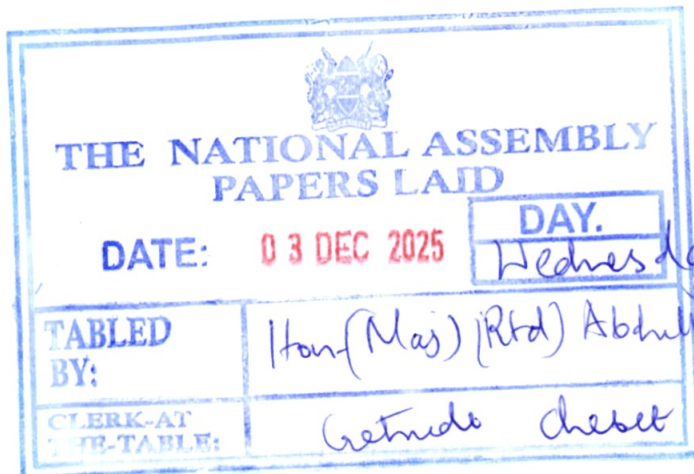 THE NATIONAL ASSEMBLY
PAPERS LAID
DATE: 03 DEC 2025
DAY.
Wednesda
TABLED BY: Hon (Maj) (Rtd) Abdull
CLERK-AT THE-TABLE: Getrude Chebet